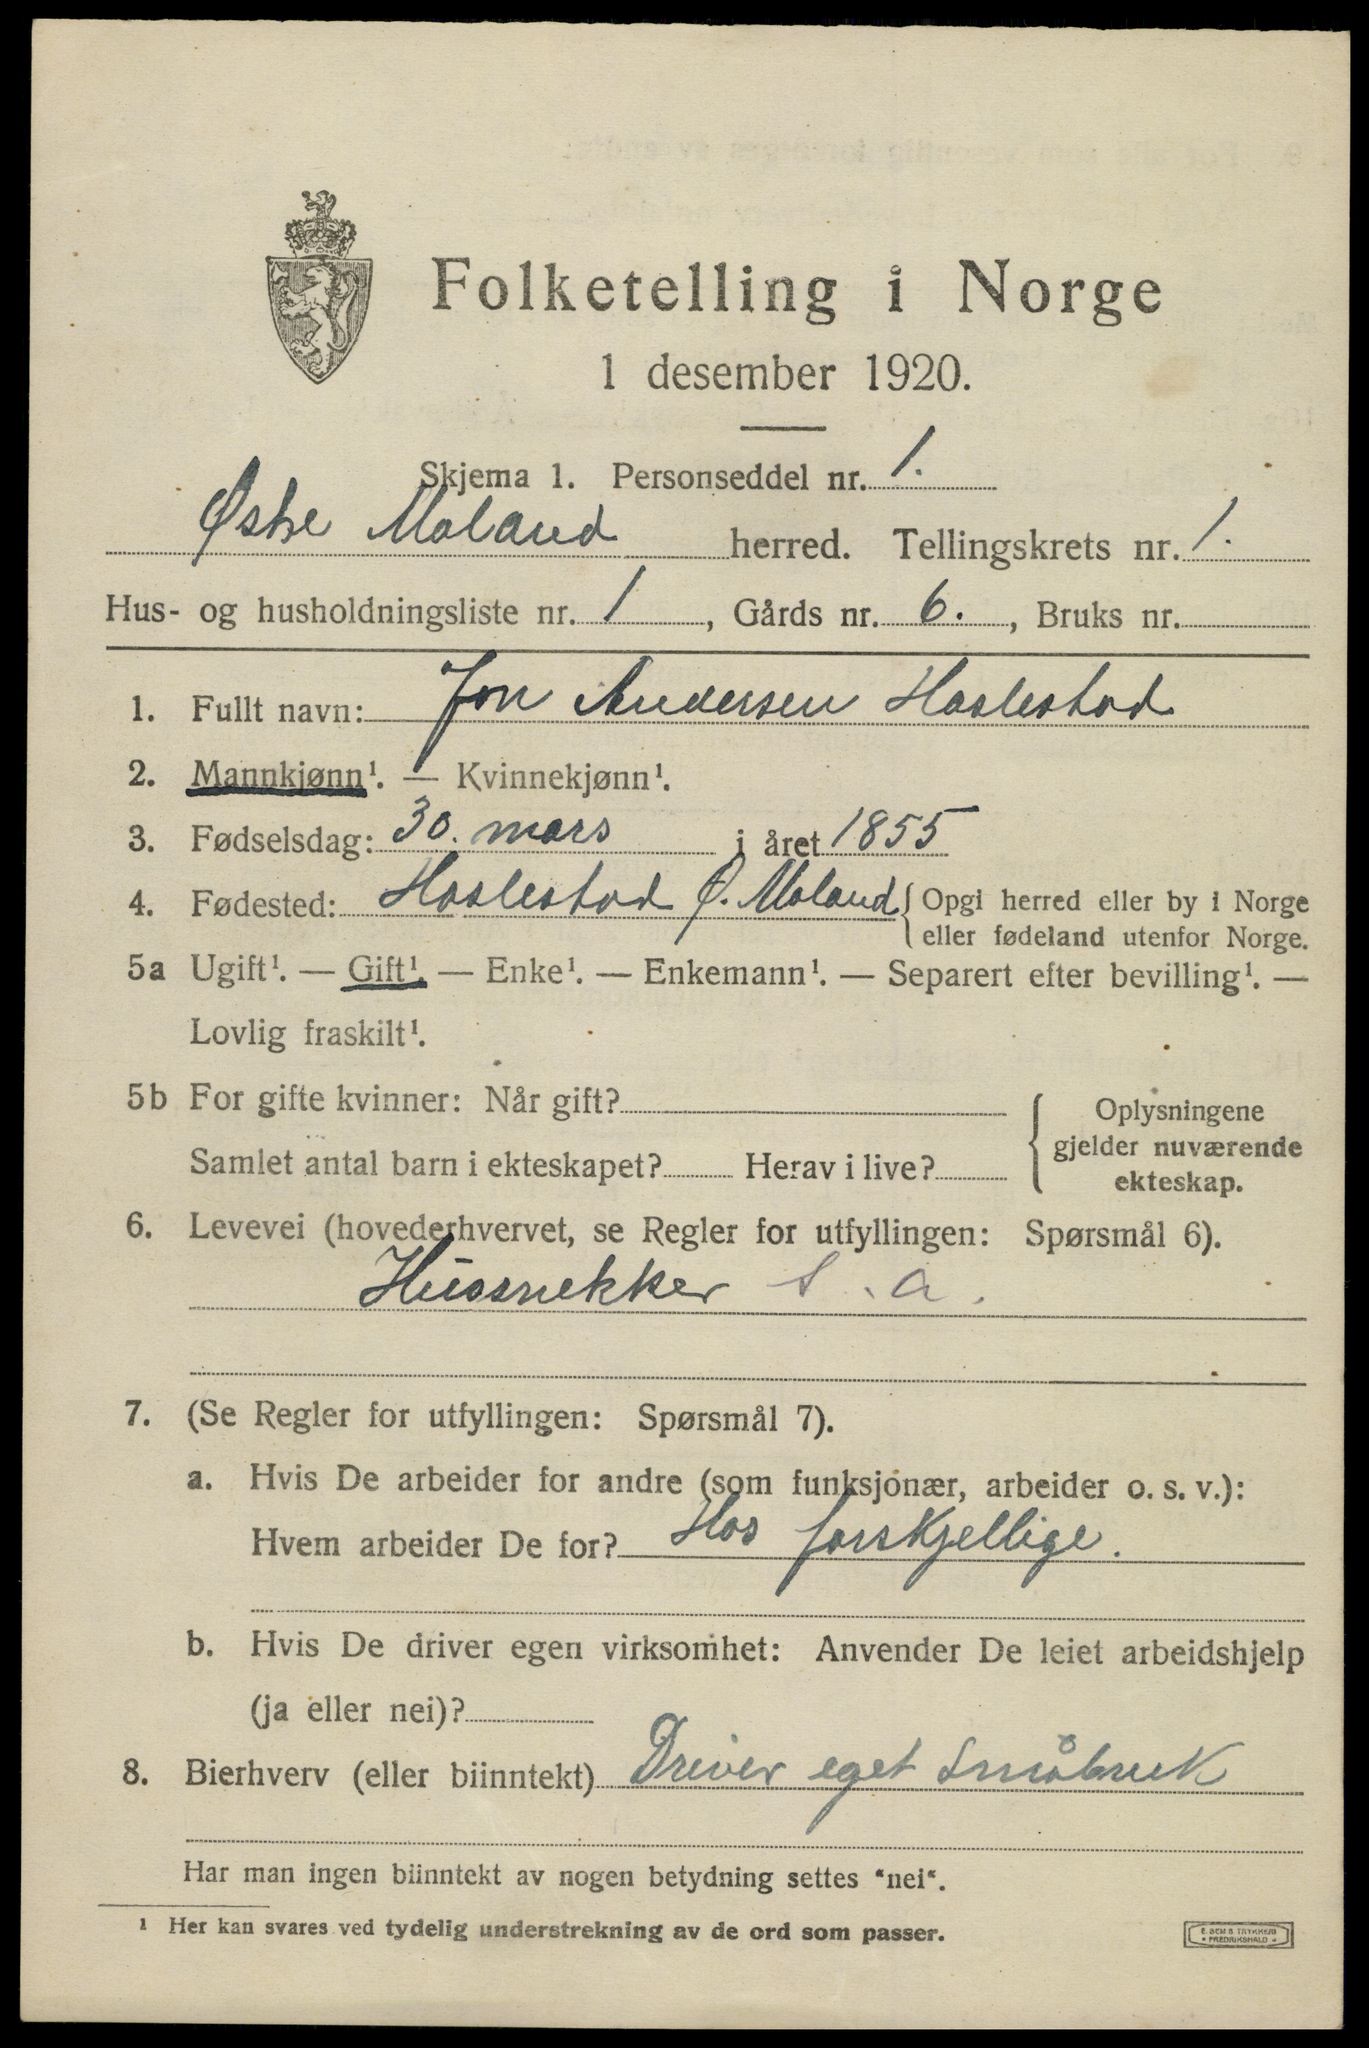 Folketelling i Norge
1 desember 1920.
Skjema 1. Personseddel nr. 1.
Østre Moland herred. Tellingskrets nr. 1.
Hus- og husholdningsliste nr. 1, Gårds nr. 6., Bruks nr.
1. Fullt navn: Jon Andersen Haslestad
2. Mannkjønn¹. — Kvinnekjønn¹.
3. Fødselsdag: 30. mars i året 1855
4. Fødested: Haslestad Ø. Moland { Opgi herred eller by i Norge
eller fødeland utenfor Norge.
5a Ugift¹. — Gift¹. — Enke¹. — Enkemann¹. — Separert efter bevilling¹. —
Lovlig fraskilt¹.
5b For gifte kvinner: Når gift?
Samlet antal barn i ekteskapet? Herav i live?
{ Oplysningene
gjelder nuværende
ekteskap.
6. Levevei (hovederhvervet, se Regler for utfyllingen: Spørsmål 6).
Hussnekker s. a.
7. (Se Regler for utfyllingen: Spørsmål 7).
a. Hvis De arbeider for andre (som funksjonær, arbeider o. s. v.):
Hvem arbeider De for? Hos forskjellige.
b. Hvis De driver egen virksomhet: Anvender De leiet arbeidshjelp
(ja eller nei)?
8. Bierhverv (eller biinntekt) Driver eget Småbruk
Har man ingen biinntekt av nogen betydning settes "nei".
¹ Her kan svares ved tydelig understrekning av de ord som passer.
E. SEM S TRYKKERI
FREDRIKSHALD